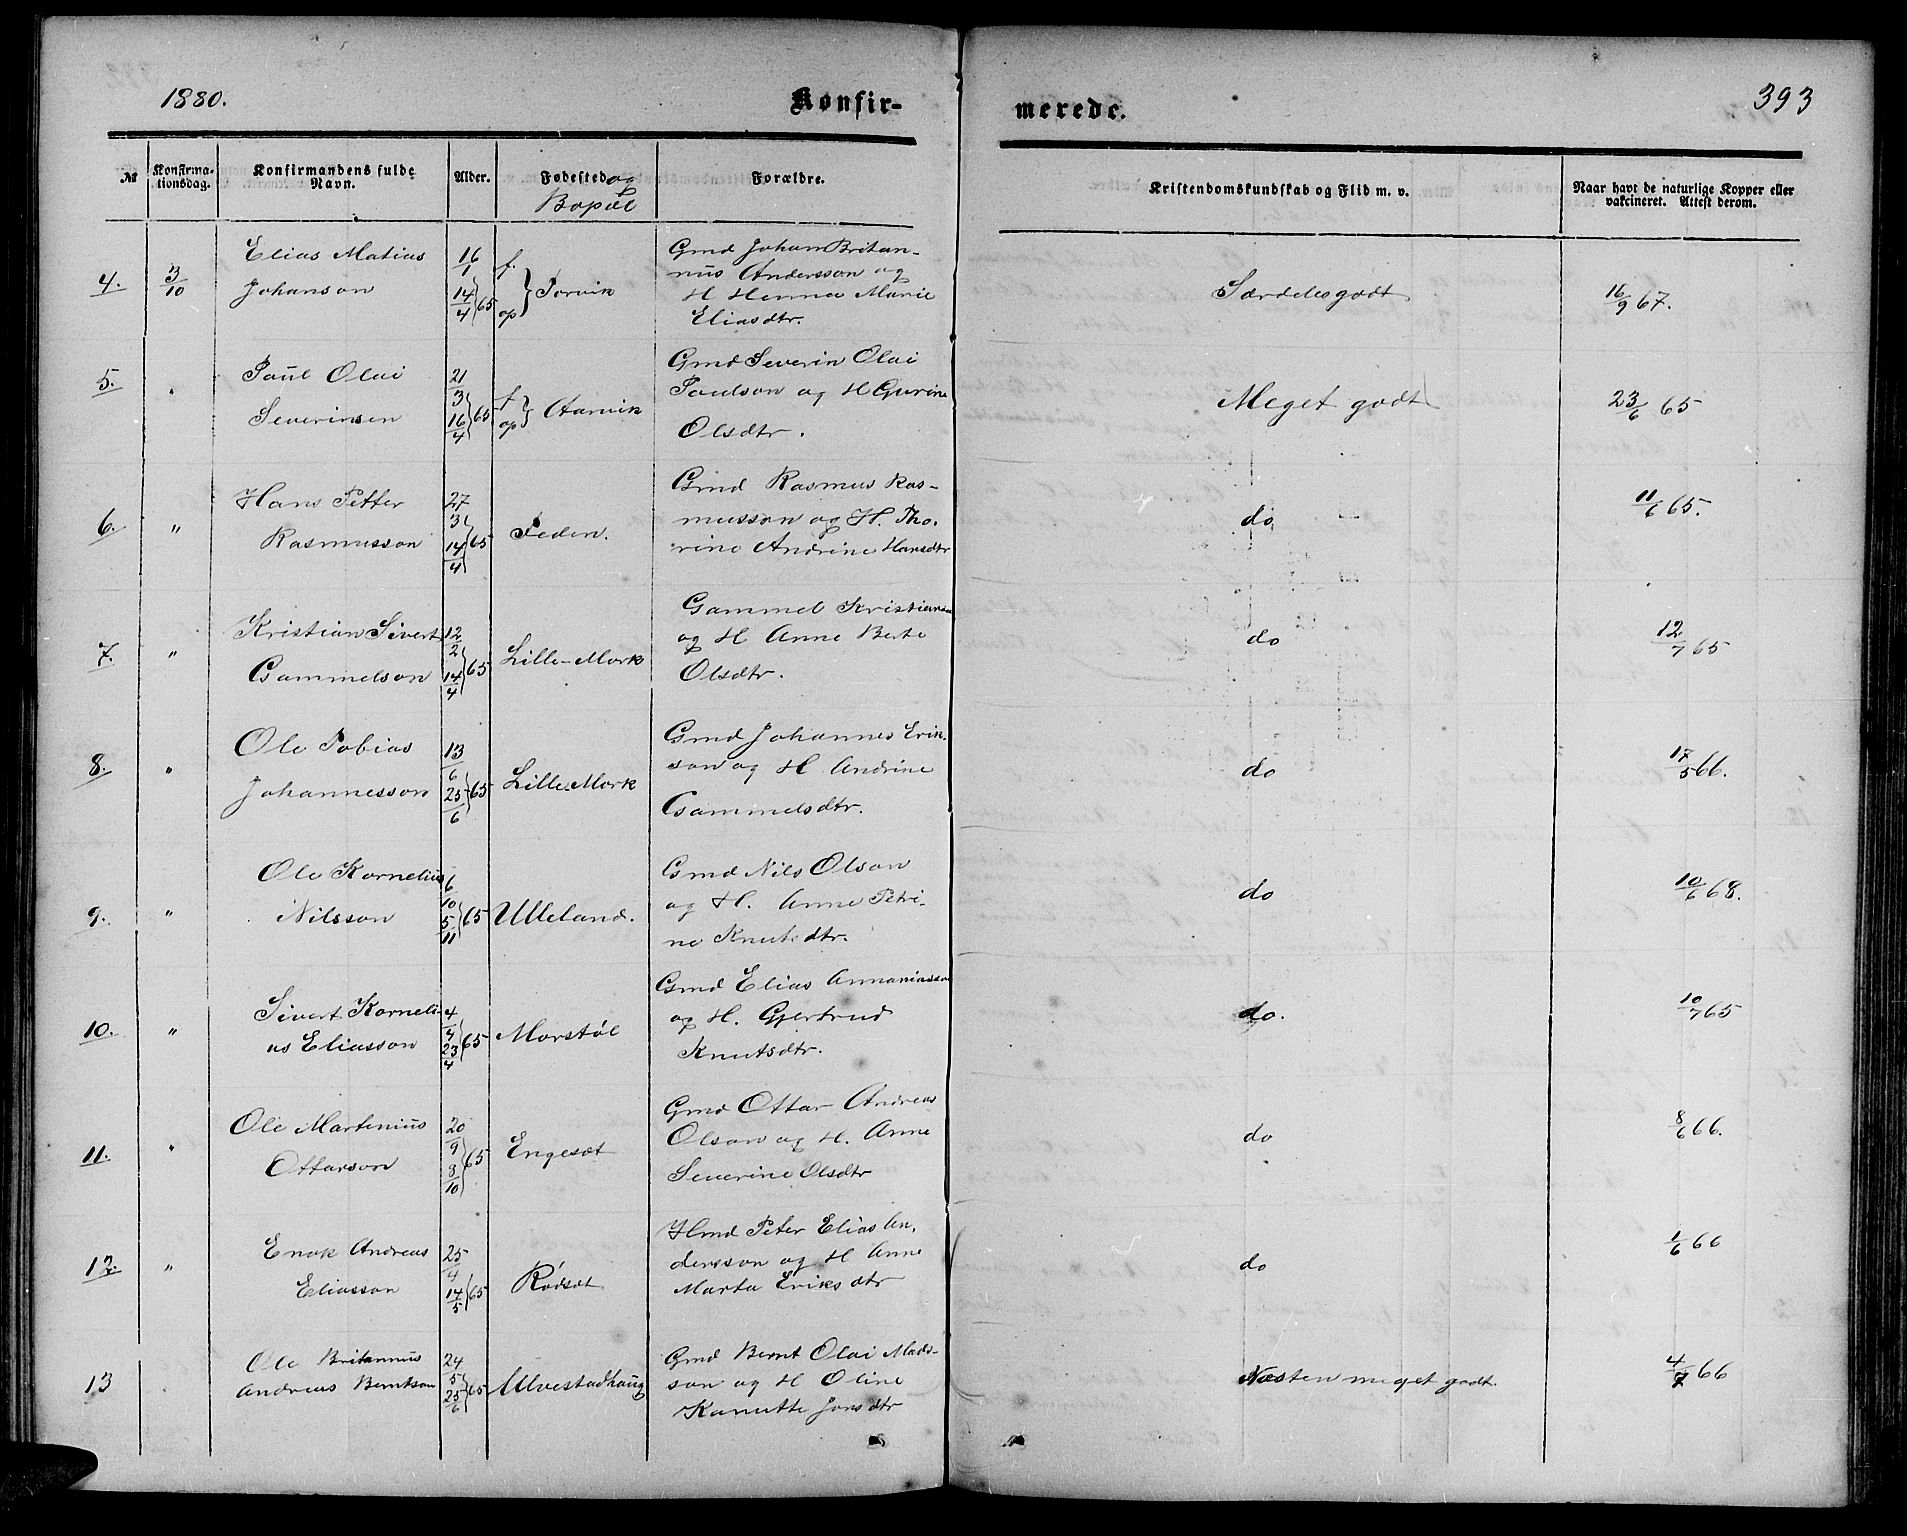 1880.
Konfir-
merede.
393
№
Konfirma-
tionsdag.
Konfirmandens fulde
Navn.
Alder.
Fødested og
Bopæl
Forældre.
Kristendomskundskab og Flid m. v.
Naar havt de naturlige Kopper eller
vakcineret. Attest derom.
4. 3/10 Elias Matias 16/1 f. Gmd Johan Britan-
nüs Andersson og
Johanson 14/4 65 op Torvik H Henna Marie Særdeles godt 16/9 67.
Eliasdtr.
5. " Paul Olai 21/3 f Gmd Severin Olai
Severinsen 16/4 65 op Aarvik Paulson og H Gurine Meget godt 23/6 65
Olsdtr.
6. " Hans Petter 27/3 Gmd Rasmus Ras-
Rasmusson 14/4 65 Peden. musson og H. Tho- do 11/6 65.
rine Andrine Hansdtr
7. " Kristian Sivert 12/2 Gammel Kristianson
Gammelson 14/4 65 Lille-Mork og H Anne Berte do 12/7 65
Olsdtr.
8. " Ole Tobias 13/6 Gmd Johannes Erik-
Johannesson 25/6 65 Lille-Mork son og H Andrine do 17/5 66.
Gammelsdtr.
9. " Ole Kornelius 6/10 Gmd Nils Olson
Nilsson 5/11 65 Ulleland. og H. Anne Petri- do 10/6 68.
ne Knutsdtr.
10. " Sivert Korneli- 4/4 Gmd Elias Annaniasson
us Eliasson 23/4 65 Morstøl og H. Gjertrud do. 10/7 65
Knutsdtr.
11. " Ole Martenius 20/9 Gmd Ottar Andreas
Ottarson 8/10 65 Engeset Olson og H. Anne do 8/6 66.
Severine Olsdtr
12. " Enok Andreas 25/4 Hmd Peter Elias An-
Eliasson 14/5 65 Rødset dersson og H Anne do 1/6 66
Marta Eriksdtr
13 Ole Britannus 24/5 Gmd Bernt Olai Mads-
Andreas Berntson 25/6 65 Ulvestadhaug son og H Oline Næsten meget godt. 4/7 66
Kanutte Jonsdtr